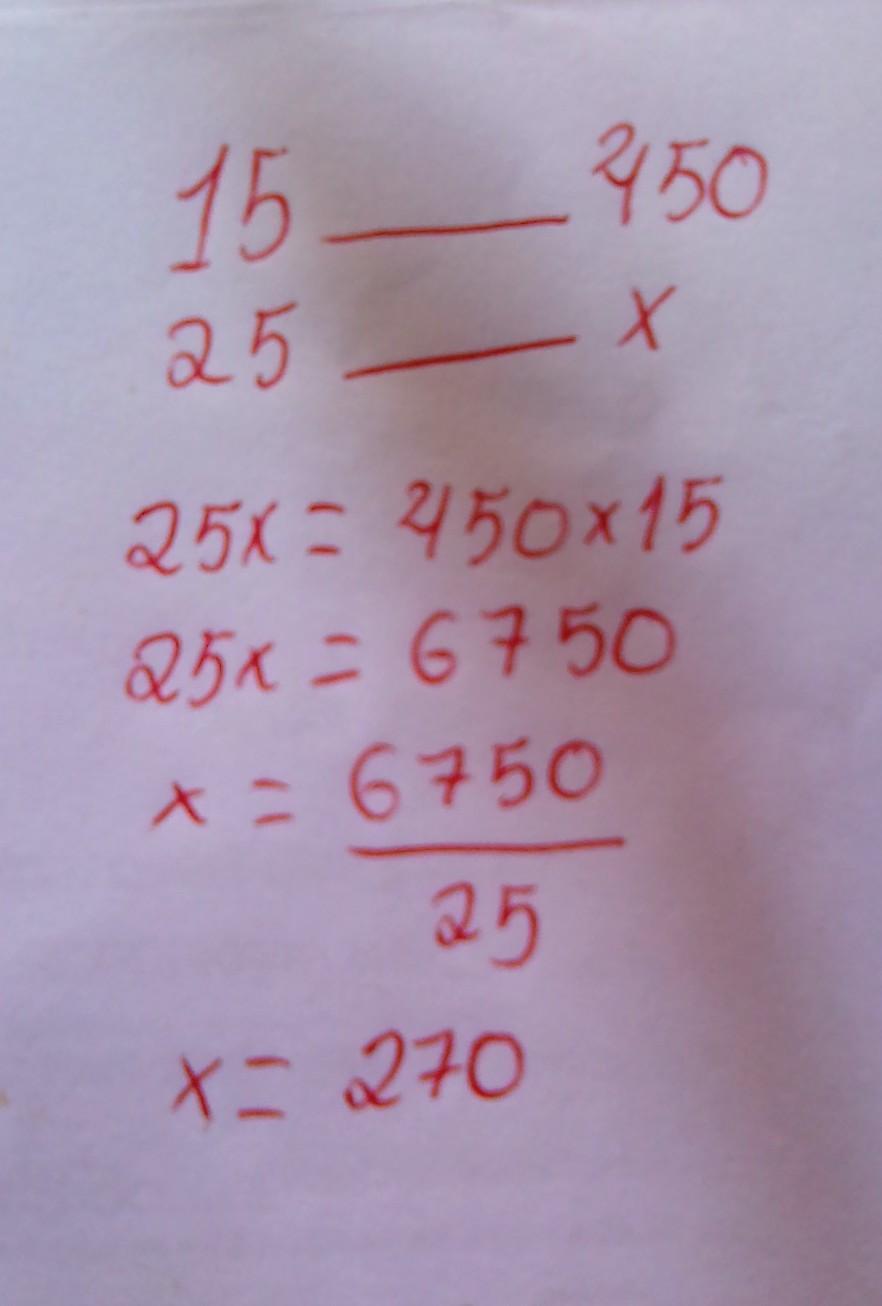 15 — 450
25 — x
25x = 450x15
25x = 6750
x = 6750
25
x = 270